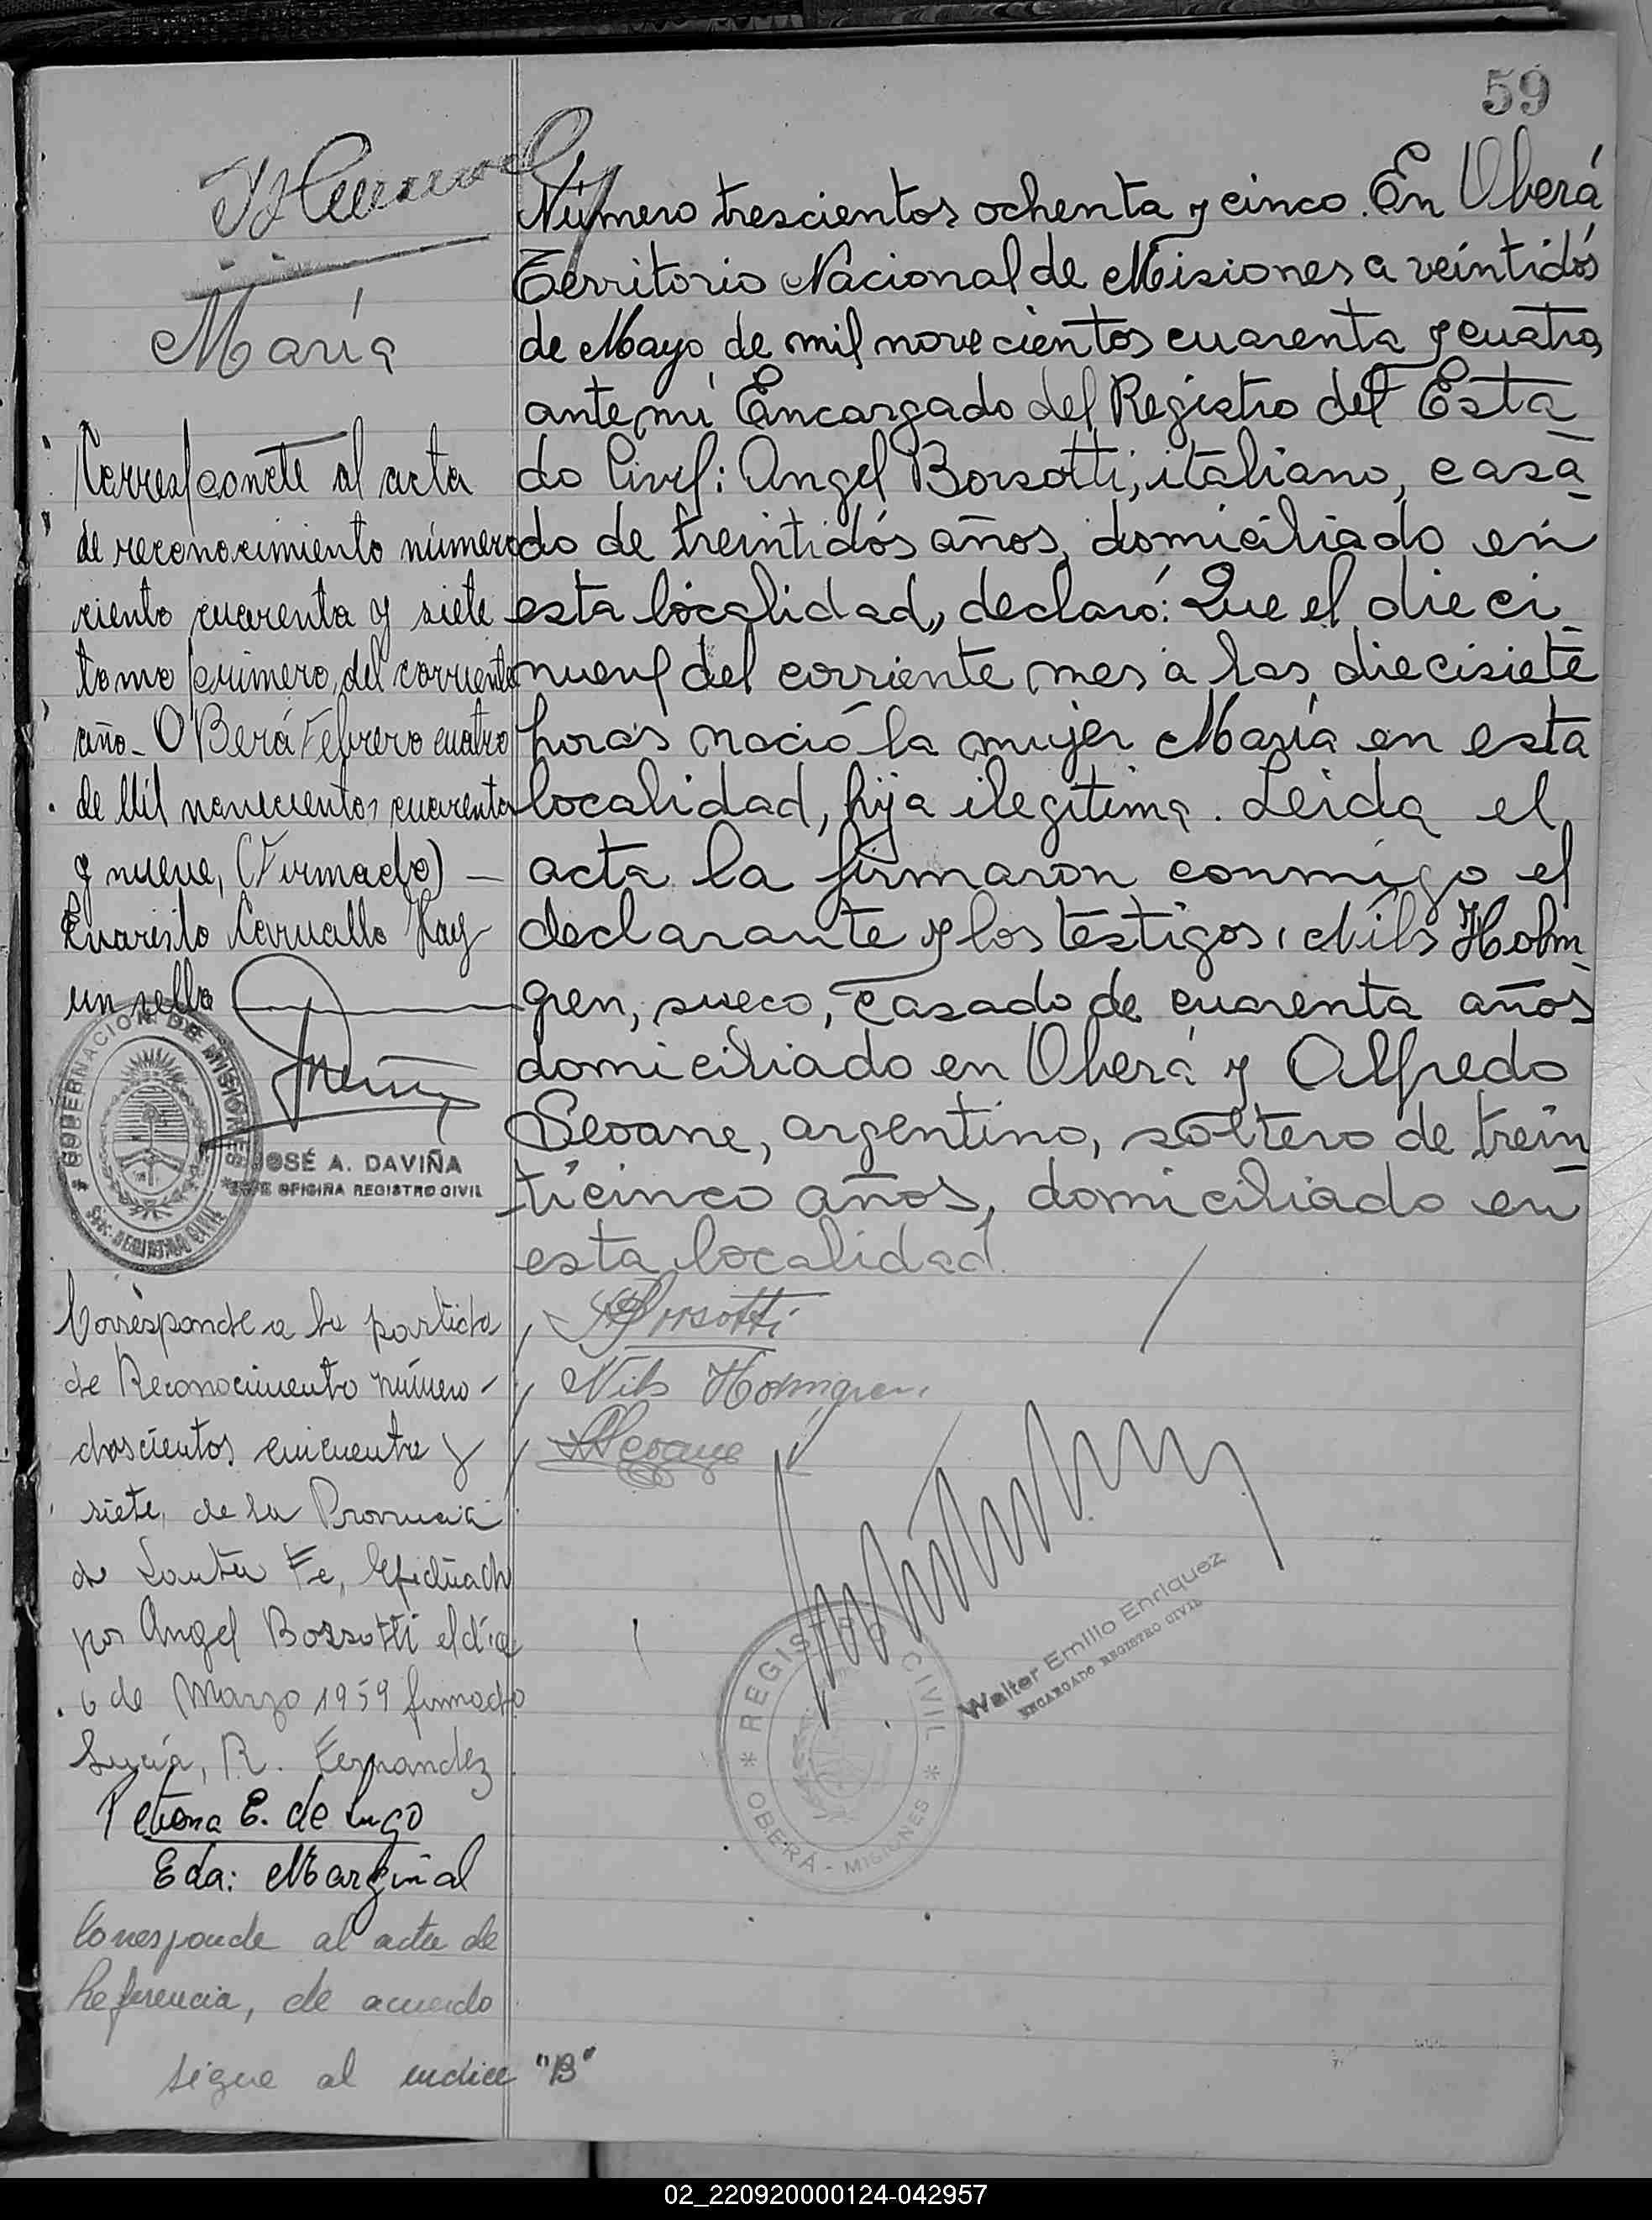 59
María
Número trescientos ochenta y cinco. En Oberá
Territorio Nacional de Misiones a veintidós
de Mayo de mil novecientos cuarenta y cuatro,
ante mí Encargado del Registro del Esta_
do Civil: Angel Borsotti, italiano, casa_
do de treintidós años, domiciliado en
esta localidad, declaró: Que el dieci_
nueve del corriente mes a las diecisiete
horas nació la mujer María en esta
localidad, hija ilegítima. Leida el
acta la firmaron conmigo el
declarante y los testigos, Nils Holm_
gren, sueco, casado de cuarenta años
domiciliado en Oberá y Alfredo
Seoane, argentino, soltero de trein_
ticinco años, domiciliado en
esta localidad.
Borsotti
Nils Holmgren
Seoane
REGISTRO CIVIL
OBERÁ - MISIONES
Walter Emilio Enriquez
ENCARGADO REGISTRO CIVIL
al acta
de reconocimiento número
ciento cuarenta y siete
tomo primero, del corriente
año_ OBerá Febrero cuatro
de Mil novecientos cuarenta
y nueve, (Firmado) _
Evaristo Carvallo Hay
un sello
GOBERNACION DE MISIONES
JOSÉ A. DAVIÑA
JEFE OFICINA REGISTRO CIVIL
Corresponde a la partida
de Reconocimiento número
doscientos cincuenta y
siete, de la Provincia
de Santa Fe,
por Angel Borsotti el día
6 de Marzo 1959 firmado
Lucía, R. Fernandez
Petrona E. de Lugo
Eda: Marginal
Corresponde al acta de
Referencia, de acuerdo
sigue al indice "B"
02_220920000124-042957